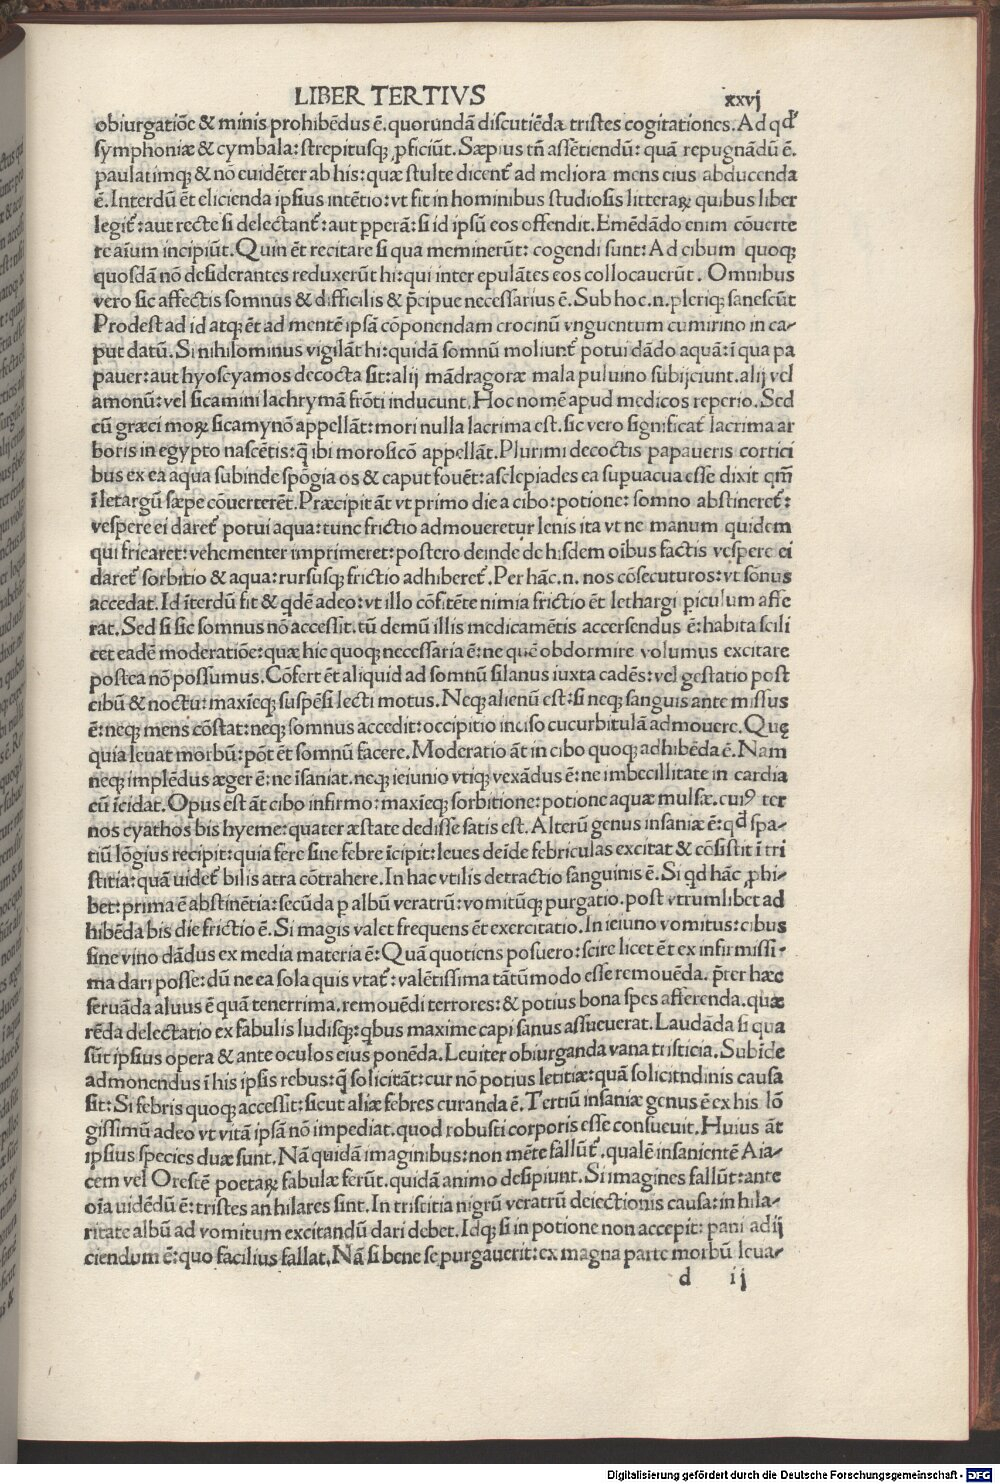 LIBER TERTIVS xxvj
obiurgatiõe & minis prohibẽdus ẽ. quorundã discutiẽda tristes cogitationes. Ad qd
symphoniæ & cymbala: strepitusq; ꝓficiũt. Sæpius tñ assẽtiendũ: quã repugnãdũ ẽ.
paulatimq; & nõ euidẽter ab his: quæ stulte dicent᷑ ad meliora mens eius abducenda
ẽ. Interdũ ẽt elicienda ipsius intẽtio: vt fit in hominibus studiosis litteraꝝ quibus liber
legit᷑: aut recte si delectant᷑: aut pperã: si id ipsũ eos offendit. Emẽdãdo enim cõuerte
re aĩum incipiũt. Quin ẽt recitare si qua meminerũt: cogendi sunt: Ad cibum quoq;
quosdã nõ desiderantes reduxerũt hi: qui inter epulãtes eos collocauerũt. Omnibus
vero sic affectis somnus & difficilis & p̃cipue necessarius ẽ. Sub hoc. n. pleriq; sanescũt
Prodest ad id atq; ẽt ad mentẽ ipsã cõponendam crocinũ vnguentum cu mirino in ca-
put datũ. Si nihilominus vigilãt hi: quidã somnũ moliunt᷑ potui dãdo aquã: ĩ qua pa
pauer: aut hyoscyamos decocta sit: alij mãdragoræ mala puluino subijciunt. alij vel
amonũ: vel sicamini lachrymã frõti inducunt. Hoc nomẽ apud medicos reperio. Sed
cũ græci moꝝ sicamynõ appellãt: mori nulla lacrima est. sic vero significat᷑ lacrima ar
boris in egypto nascẽtis: q̃ ibi morosicõ appellãt. Plurimi decoctis papaueris cortici
bus ex ea aqua subinde spõgia os & caput fouẽt: asclepiades ea supuacua esse dixit qm̃
ĩ letargũ sæpe cõuerterẽt. Præcipit ãt vt primo die a cibo: potione: somno abstineret᷑:
vespere ei daret᷑ potui aqua: tunc frictio admoueretur lenis ita vt ne manum quidem
qui fricaret: vehementer imprimeret: postero deinde de hisdem oibus factis vespere ei
daret᷑ sorbitio & aqua: rursusq; frictio adhiberet᷑. Per hãc. n. nos cõsecuturos: vt sõnus
accedat. Id ĩterdũ fit & qdẽ adeo: vt illo cõfitẽte nimia frictio ẽt lethargi piculum affe
rat. Sed si sic somnus nõ accessit. tũ demũ illis medicamẽtis accersendus ẽ: habita scili
cet eadẽ moderatiõe: quæ hic quoq; necessaria ẽ: ne quẽ obdormire volumus excitare
postea nõ possumus. Cõfert ẽt aliquid ad somnũ silanus iuxta cadẽs: vel gestatio post
cibũ & noctu: maxĩeq; suspẽsi lecti motus. Neq; alienũ est: si neq; sanguis ante missus
ẽ: neq; mens cõstat: neq; somnus accedit: occipitio inciso cucurbitulã admouere. Quę
quia leuat morbũ: põt ẽt somnũ facere. Moderatio ãt in cibo quoq; adhibẽda ẽ. Nam
neq; implẽdus æger ẽ: ne ĩsaniat. neq; ieiunio vtiq; vexãdus ẽ: ne imbecillitate in cardia
cũ ĩcidat. Opus est ãt cibo infirmo: maxĩeq; sorbitione: potione aquæ mulsæ. cuiꝰ ter
nos cyathos bis hyeme: quater æstate dedisse satis est. Alterũ genus insaniæ ẽ: qd spa-
tiũ lõgius recipit: quia fere sine febre ĩcipit: leues deĩde febriculas excitat & cõsistit ĩ tri
stitia: quã uidet᷑ bilis atra cõtrahere. In hac vtilis detractio sanguinis ẽ. Si qd hãc ꝓhi-
bet: prima ẽ abstinẽtia: secũda p albũ veratrũ: vomitũq; purgatio. post vtrumlibet ad
hibẽda bis die frictio ẽ. Si magis valet frequens ẽt exercitatio. In ieiuno vomitus: cibus
sine vino dãdus ex media materia ẽ: Quã quotiens posuero: scire licet ẽt ex infirmissi-
ma dari posse: dũ ne ea sola quis vtat᷑: valẽtissima tãtũmodo esse remouẽda. p̃ter hæc
seruãda aluus ẽ quã tenerrima. remouẽdi terrores: & potius bona spes afferenda. quæ
rẽda delectatio ex fabulis ludisq;: qbus maxime capi sanus assueuerat. Laudãda si qua
sũt ipsius opera & ante oculos eius ponẽda. Leuiter obiurganda vana tristicia. Subĩde
admonendus ĩ his ipsis rebus: q̃ solicitãt: cur nõ potius letitiæ: quã solicitndinis causa
sit: Si febris quoq; accessit: sicut aliæ febres curanda ẽ. Tertiũ insaniæ genus ẽ ex his lõ
gissimũ adeo vt vitã ipsã nõ impediat. quod robusti corporis esse consueuit. Huius ãt
ipsius species duæ sunt. Nã quidã imaginibus: non mẽte fallũt᷑. qualẽ insanientẽ Aia-
cem vel Orestẽ poetaꝝ fabulæ ferũt. quidã animo desipiunt. Si imagines fallũt: ante
oĩa uidẽdũ ẽ: tristes an hilares sint. In tristitia nigrũ veratrũ deiectionis causa: in hila-
ritate albũ ad vomitum excitandũ dari debet. Idq; si in potione non accepit: pani adij
ciendum ẽ: quo facilius fallat. Nã si bene se purgauerit: ex magna parte morbũ leua-
d ij
Digitalisierung gefördert durch die Deutsche Forschungsgemeinschaft - DFG